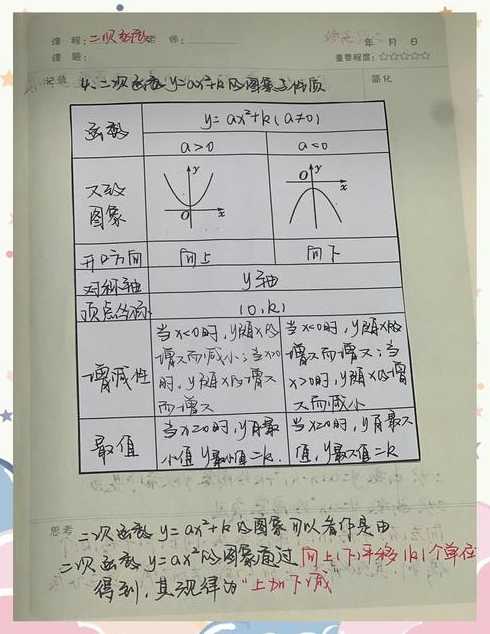 课 程：二次函数 老 师：
年 月 日
课 题：
重要程度：☆☆☆☆☆
记录
简化
4.二次函数y=ax²+k的图象与性质
函数
y=ax²+k(a≠0)
a>0
a<0
大致
图象
y
O
x
y
O
x
开口方向
向上
向下
对称轴
y轴
顶点坐标
(0,k)
增减性
当x<0时,y随x的
增大而减小;当x>0
时,y随x的增大
而增大
当x<0时,y随x的
增大而增大;当
x>0时,y随x的增
大而减小
最值
当x=0时,y有最
小值 y最小值=k.
当x=0时,y有最大
值,y最大值=k
思考
二次函数y=ax²+k的图象可以看作是由
二次函数y=ax²的图象通过向上(下)平移|k|个单位
得到,其规律为"上加下减